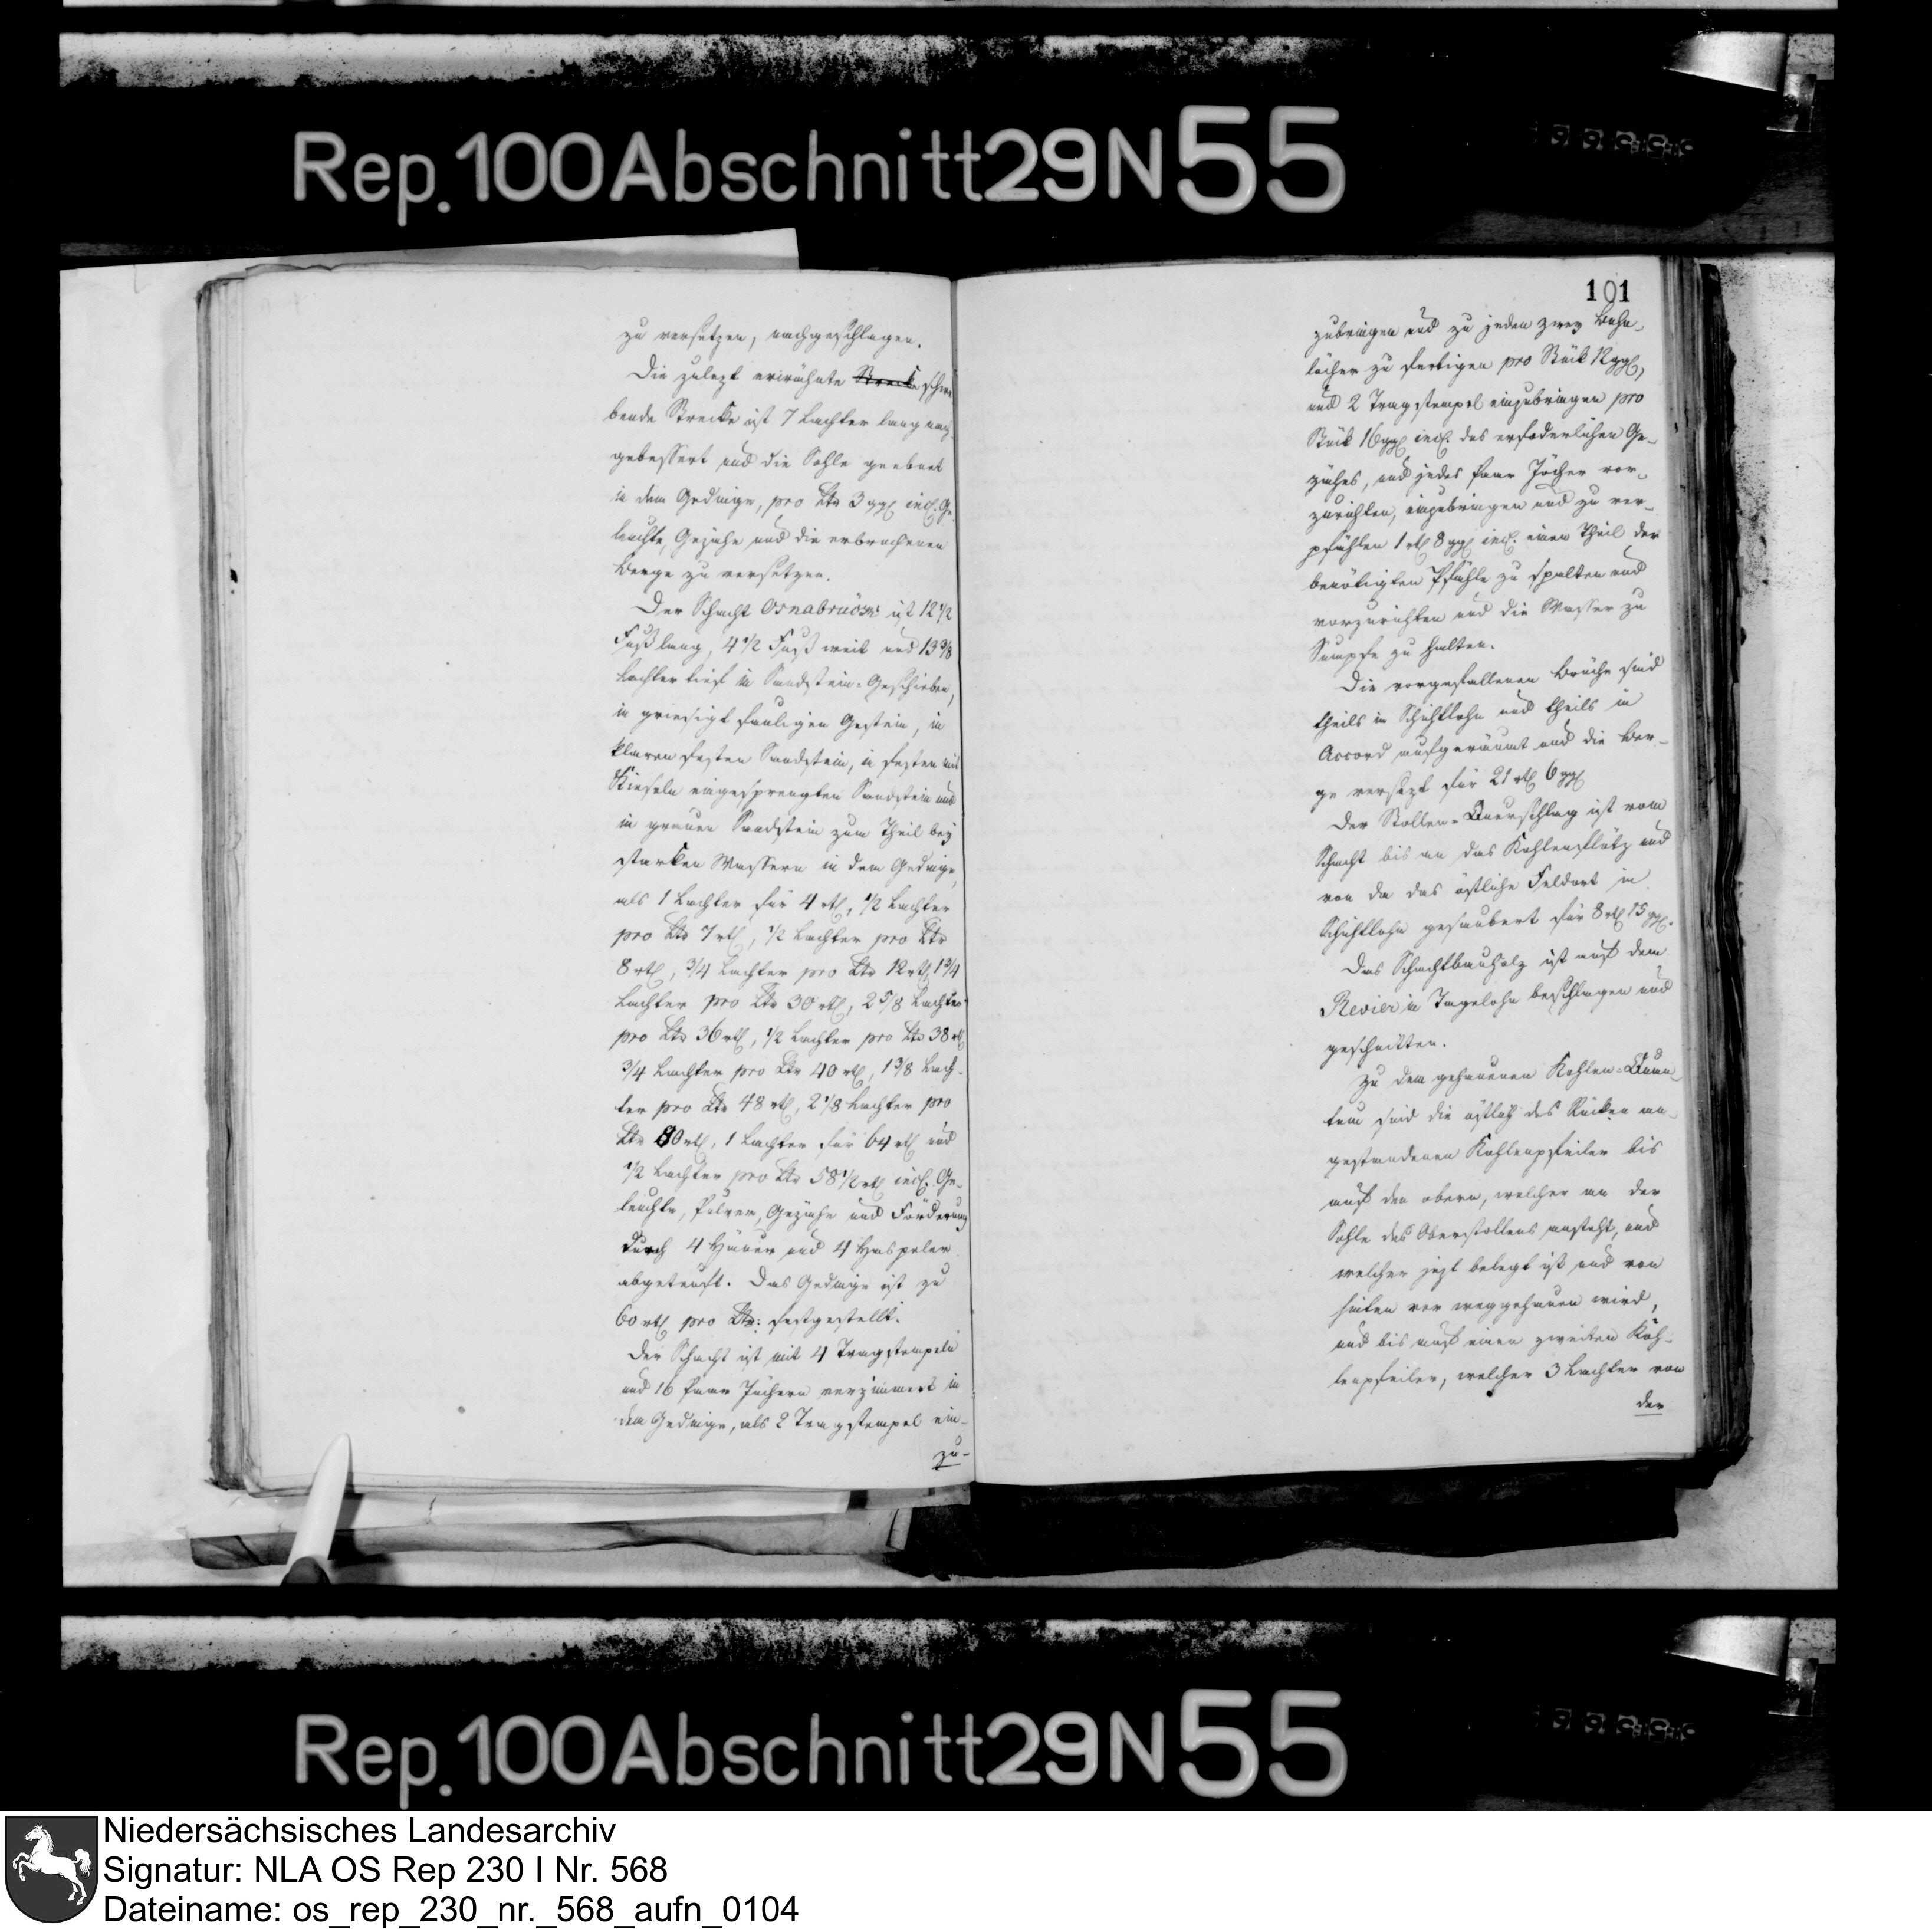 Rep. 100 Abschnitt 29 N 55
zu versetzen, nachgeschlagen.
Die zulezt erwähnte Strecke schwe
bende Strecke ist 7 Lachter lang nach-
gebessert und die Sohle geebnet
in dem Gedinge, pro Ltr 3 ggl incl. Ge-
leuchte, Gezähe und die erbrochenen
Berge zu versetzen.
Der Schacht Osnabrück ist 12 1/2
Fuß lang, 4 1/2 Fuß weit und 13 3/8
Lachter tief in Sandstein-Geschieben,
in griesigt fauligen Gestein, in
klaren festen Sandstein, in festen mit
Kieseln eingesprengten Sandstein und
in grauen Sandstein zum Theil bey
starken Wassern in dem Gedinge,
als 1 Lachter für 4 rtl, 1/2 Lachter
pro Ltr 7 rtl, 1/2 Lachter pro Ltr
8 rtl, 3/4 Lachter pro Ltr 12 rtl, 1 3/4
Lachter pro Ltr 30 rtl, 2 5/8 Lachter
pro Ltr 36 rtl, 1/2 Lachter pro Ltr 38 rtl
3/4 Lachter pro Ltr 40 rtl, 1 3/8 Lach-
ter pro Ltr 48 rtl, 2 1/8 Lachter pro
Ltr rtl, 1 Lachter für 64 rtl und
1/2 Lachter pro Ltr 58 1/2 rtl incl. Ge-
leuchte, Pulver, Gezähe und Förderung
durch 4 Häuer und 4 Haspeler
abgeteuft. Das Gedinge ist zu
60 rtl pro Ltr: festgestellt.
Der Schacht ist mit 4 Tragstempeln
und 16 Paar Jöchern verzimmert in
dem Gedinge, als 2 Tragstempel ein-
zu-
101
zubringen und zu jeden zwey Bühn-
löcher zu fertigen pro Stük 12 ggl,
und 2 Tragstempel einzubringen pro
Stük 16 ggl incl. des erfoderlichen Ge-
zähes, und jedes Paar Jöcher vor-
zurichten, einzubringen und zu ver-
pfählen 1 rtl 8 ggl incl. einen Theil der
benötigten Pfähle zu spalten und
vorzurichten und die Wasser zu
Sumpfe zu halten.
Die vorgefallenen Brüche sind
theils in Schichtlohn und theils in
Accord aufgeräumt und die Ber-
ge versezt für 21 rtl 6 ggl
Der Stollen-Querschlag ist vom
Schacht bis an das Kohlenflötz und
von da das östliche Feldort in
Schichtlohn gesaubert für 8 rtl 15 ggl.
Das Schachtbauholz ist auf dem
Revier in Tagelohn beschlagen und
geschnitten.
Zu dem gehauenen Kohlen-Quan-
tum sind die östlich des Rücken an-
gestandenen Kohlenpfeiler bis
auf den obern, welcher an der
Sohle des Oberstollens ansteht, und
welcher jezt belegt ist und von
hinten vor weggehauen wird,
und bis auf einen zweiten Koh-
lenpfeiler, welcher 3 Lachter von
der
Rep. 100 Abschnitt 29 N 55
Niedersächsisches Landesarchiv
Signatur: NLA OS Rep 230 I Nr. 568
Dateiname: os_rep_230_nr._568_aufn_0104